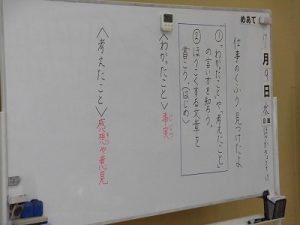 めあて
月9日水
仕事のくふう、見つけたよ
①「わかったこと」や「考えたこと」
の言い方を知ろう。
②ほうこくする文章を
書こう。(はじめ)
<わかったこと>事実
じじつ
<考えたこと>感想や意見